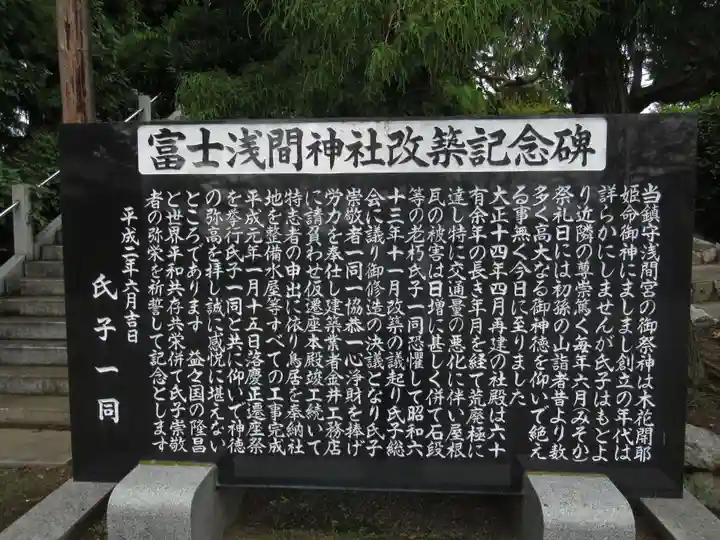 富士浅間神社改築記念碑
当鎮守浅間宮の御祭神は木花開耶
姫命御神にましまし創立の年代は
詳らかにしませんが氏子はもとよ
り近隣の尊崇篤く毎年六月(みそか)
祭礼日には初孫の山詣者昔より数
多く高大なる御神徳を仰いで絶え
る事無く今日に至りました
大正十四年四月再建の社殿は六十
有余年の長き年月を経て荒廃極に
達し特に交通量の悪化に伴い屋根
瓦の被害は日増に甚しく併て石段
等の老朽氏子一同恐懼して昭和六
十三年十一月改築の議起り氏子総
会に議り御修造の決議となり氏子
崇敬者一同一協恭一心浄財を捧げ
労力を奉仕し建築業者金井工務店
に請負わせ仮遷座本殿竣工続いて
特志者の申出に依り鳥居を奉納社
地を整備水屋等すべての工事完成
平成元年一月十五日落慶正遷座祭
を挙行氏子一同と共に仰いで神徳
の弥高を拝し誠に感悦に堪えない
ところであります 益々国の隆昌
と世界平和共存共栄併て氏子崇敬
者の弥栄を祈誓して記念とします
平成二年六月吉日
氏子一同